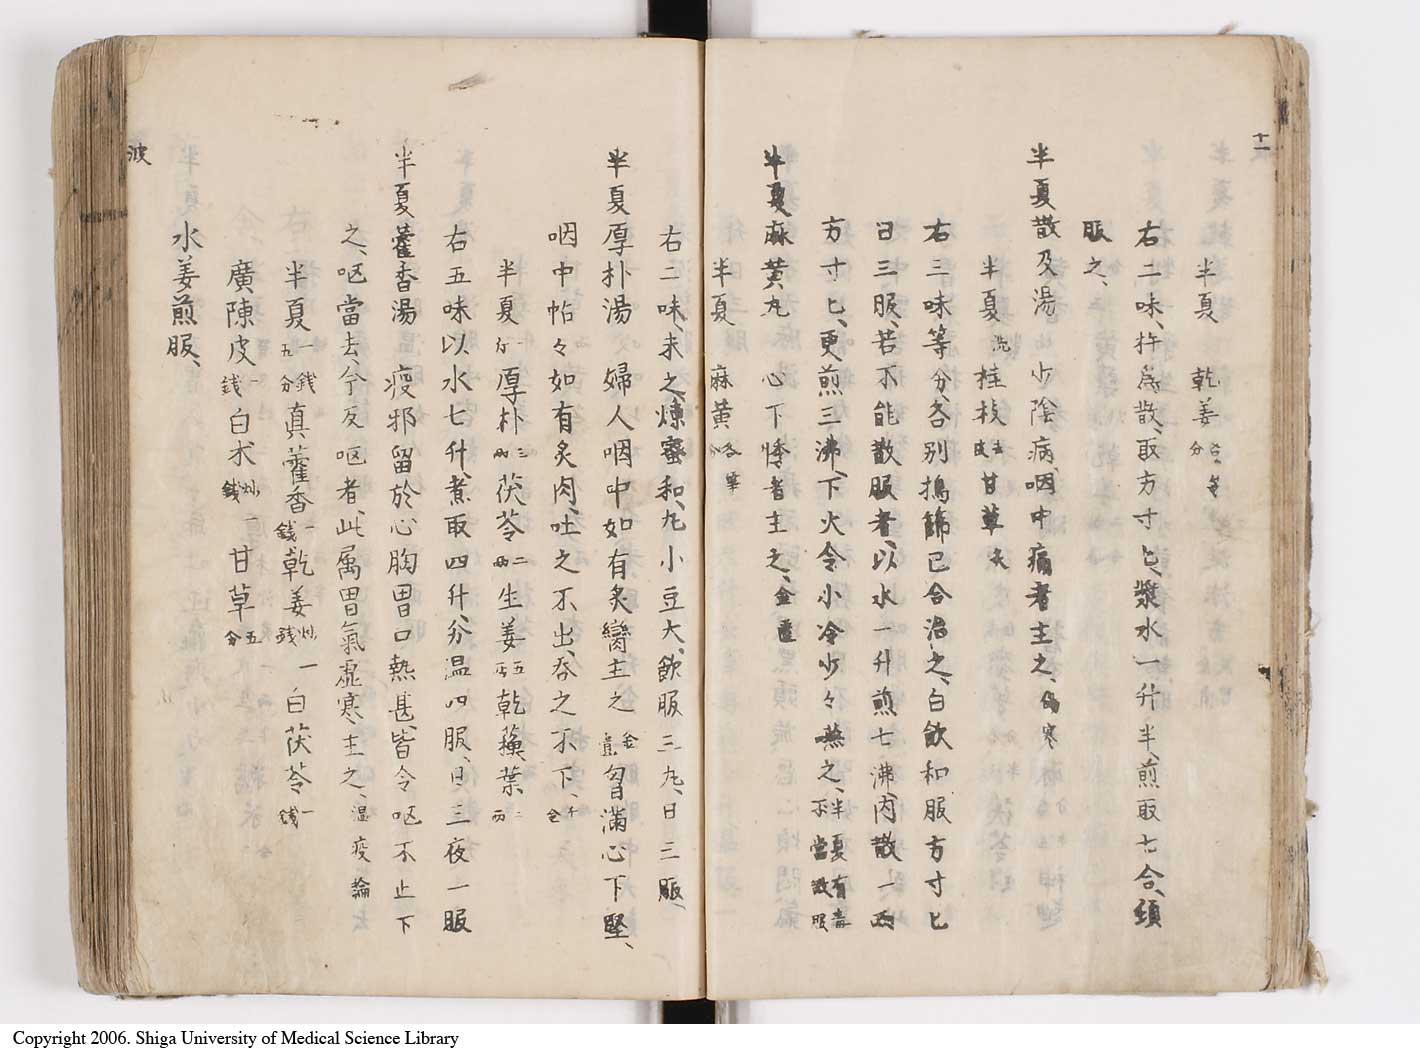 十一
半夏 乾姜
右二味、杵為散、取方寸匕、漿水一升半、煎取七合、頓
服之、
半夏散及湯 少陰病、咽中痛者主之、傷寒
半夏洗桂枝去皮甘草灸
右三味等分、各別搗篩已合治之、白飲和服方寸匕
日三服、若不能散服者、以水一升煎七沸、内散一兩
方寸匕、更煎三沸、下火令小冷少々之、半夏有毒不當散服
半夏麻黄丸 心下悸者主之、金匱
半夏 麻黄各等分
右二味、末之、煉蜜和、丸小豆大、飲服三丸、日三服、
半夏厚朴湯 婦人咽中如有炙臠主之金匱胸滿心下堅、
咽中帖々如有炙肉、吐之不出、呑之不下、千金
半夏一升厚朴三兩茯苓二兩生姜五兩乾蘓葉二兩
右五味以水七升、煮取四升、分温四服、日三夜一服
半夏藿香湯 疫邪留於心胸胃口熱甚、皆令呕不止下
之、呕當去、今反呕者、此属胃氣虚寒、主之、温疫論
半夏一錢五分真藿香一錢乾姜炒一錢白茯苓一錢
廣陳皮一錢白朮炒一錢甘草五分
水姜煎服、
波
Copyright 2006. Shiga University of Medical Science Library